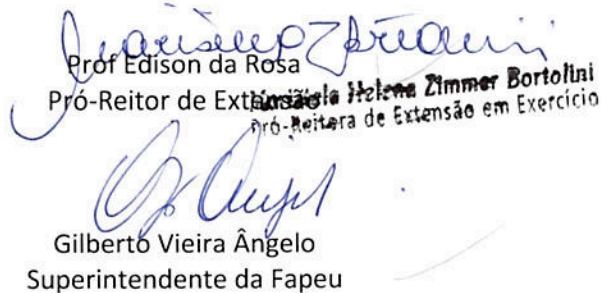 Prof Edison da Rosa
Pró-Reitor de Extensão
Helena Zimmer Bortolini
Pró-Reitora de Extensão em Exercício
Gilberto Vieira Ângelo
Superintendente da Fapeu